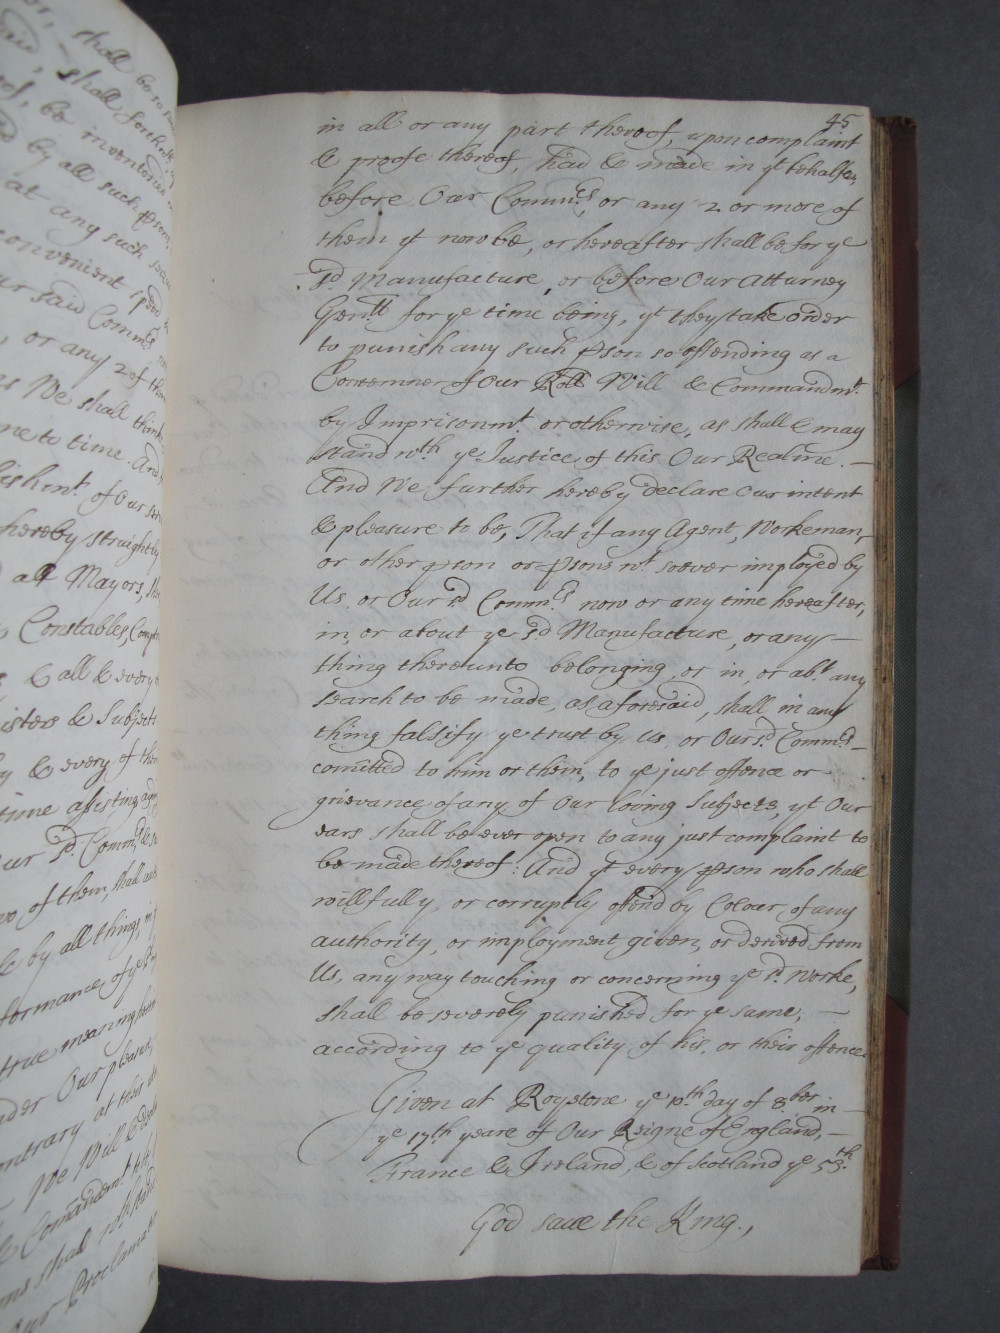 or, shall be so
said, shall forthwith
be inventoried
by all such pson
at any such
convenient
our said Comm.rs
, or any 2 of them
as We shall think
time to time. And
hereby straightly
all Mayors,
Constables,
& all & every
isters & Subjects
& every of them
time assisting
our s.d Comm.rs
two of them, shall
& by all things,
formance of ye
true meaning
under Our pleasure,
contrary at their
We Will &
& Comandem.t
ons shall
our Proclama
45
in all or any part thereof, upon complaint
& proofe thereof, had & made in yt behalfe,
before Our Comm.rs, or any 2 or more of
them yt now be, or hereafter shall be for ye
s.d Manufacture, or before Our Atturney
Gen.ll for ye time being, yt they take order
to punish any such pson so offending as a
Contemner of Our Roll Will & Commandm.t
by Imprisonm.t or otherwise, as shall & may
stand w.th ye Justice of this Our Realme. —
And We further hereby declare Our intent
& pleasure to be, That if any Agent, Workeman,
or other pson or psons w.t soever imployed by
Us, or Our s.d Comm.rs now or any time hereafter,
in, or about ye s.d Manufacture, or any —
thing thereunto belonging, or in, or ab.t any
search to be made, as aforesaid, shall in any
thing falsify ye trust by Us, or Our s.d Comm.rs —
comitted to him or them, to ye just offence or —
grievance of any of Our loving Subjects, yt Our
ears shall be ever open to any just complaint to
be made thereof: And yt every pson who shall
willfully, or corruptly offend by Colour of any
authority, or imployment given, or derived from
Us, any way touching or concerning ye s.d Worke,
shall be severely punished for ye same, —
according to ye quality of his, or their offence.
Given at Roystone ye 10.th day of 8.ber in —
ye 17th yeare of Our Reigne of England, —
France & Ireland, & of Scotland ye 53.th
God save the King.,